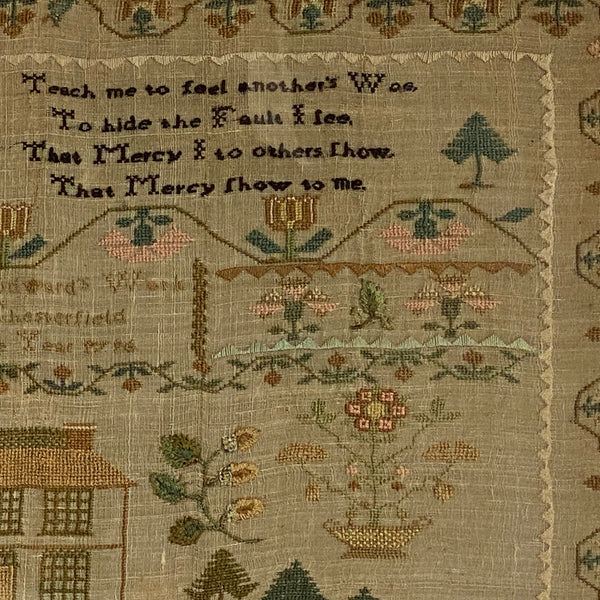 Teach me to feel another's Woe,
To hide the Fault I ſee,
That Mercy I to others ſhow
That Mercy ſhow to me.
Work
hesterfield
Year